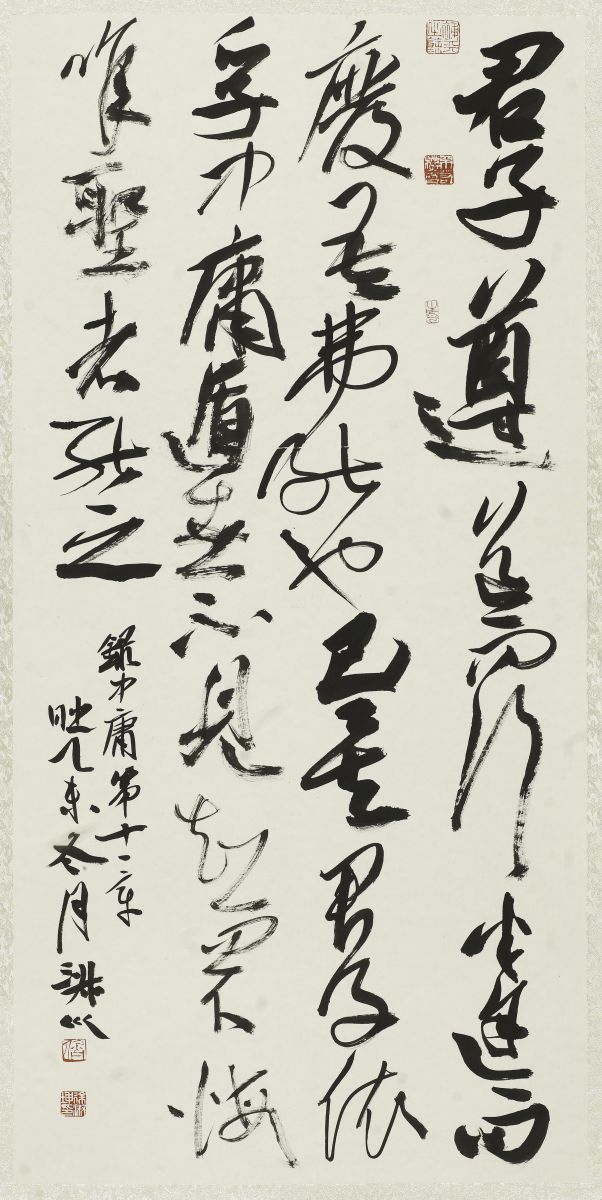 君子遵道而行半途而
廢吾弗能也已矣君子依
乎中庸遁世不見知而不悔
唯聖者能之
錄中庸第十一章
乙未冬月